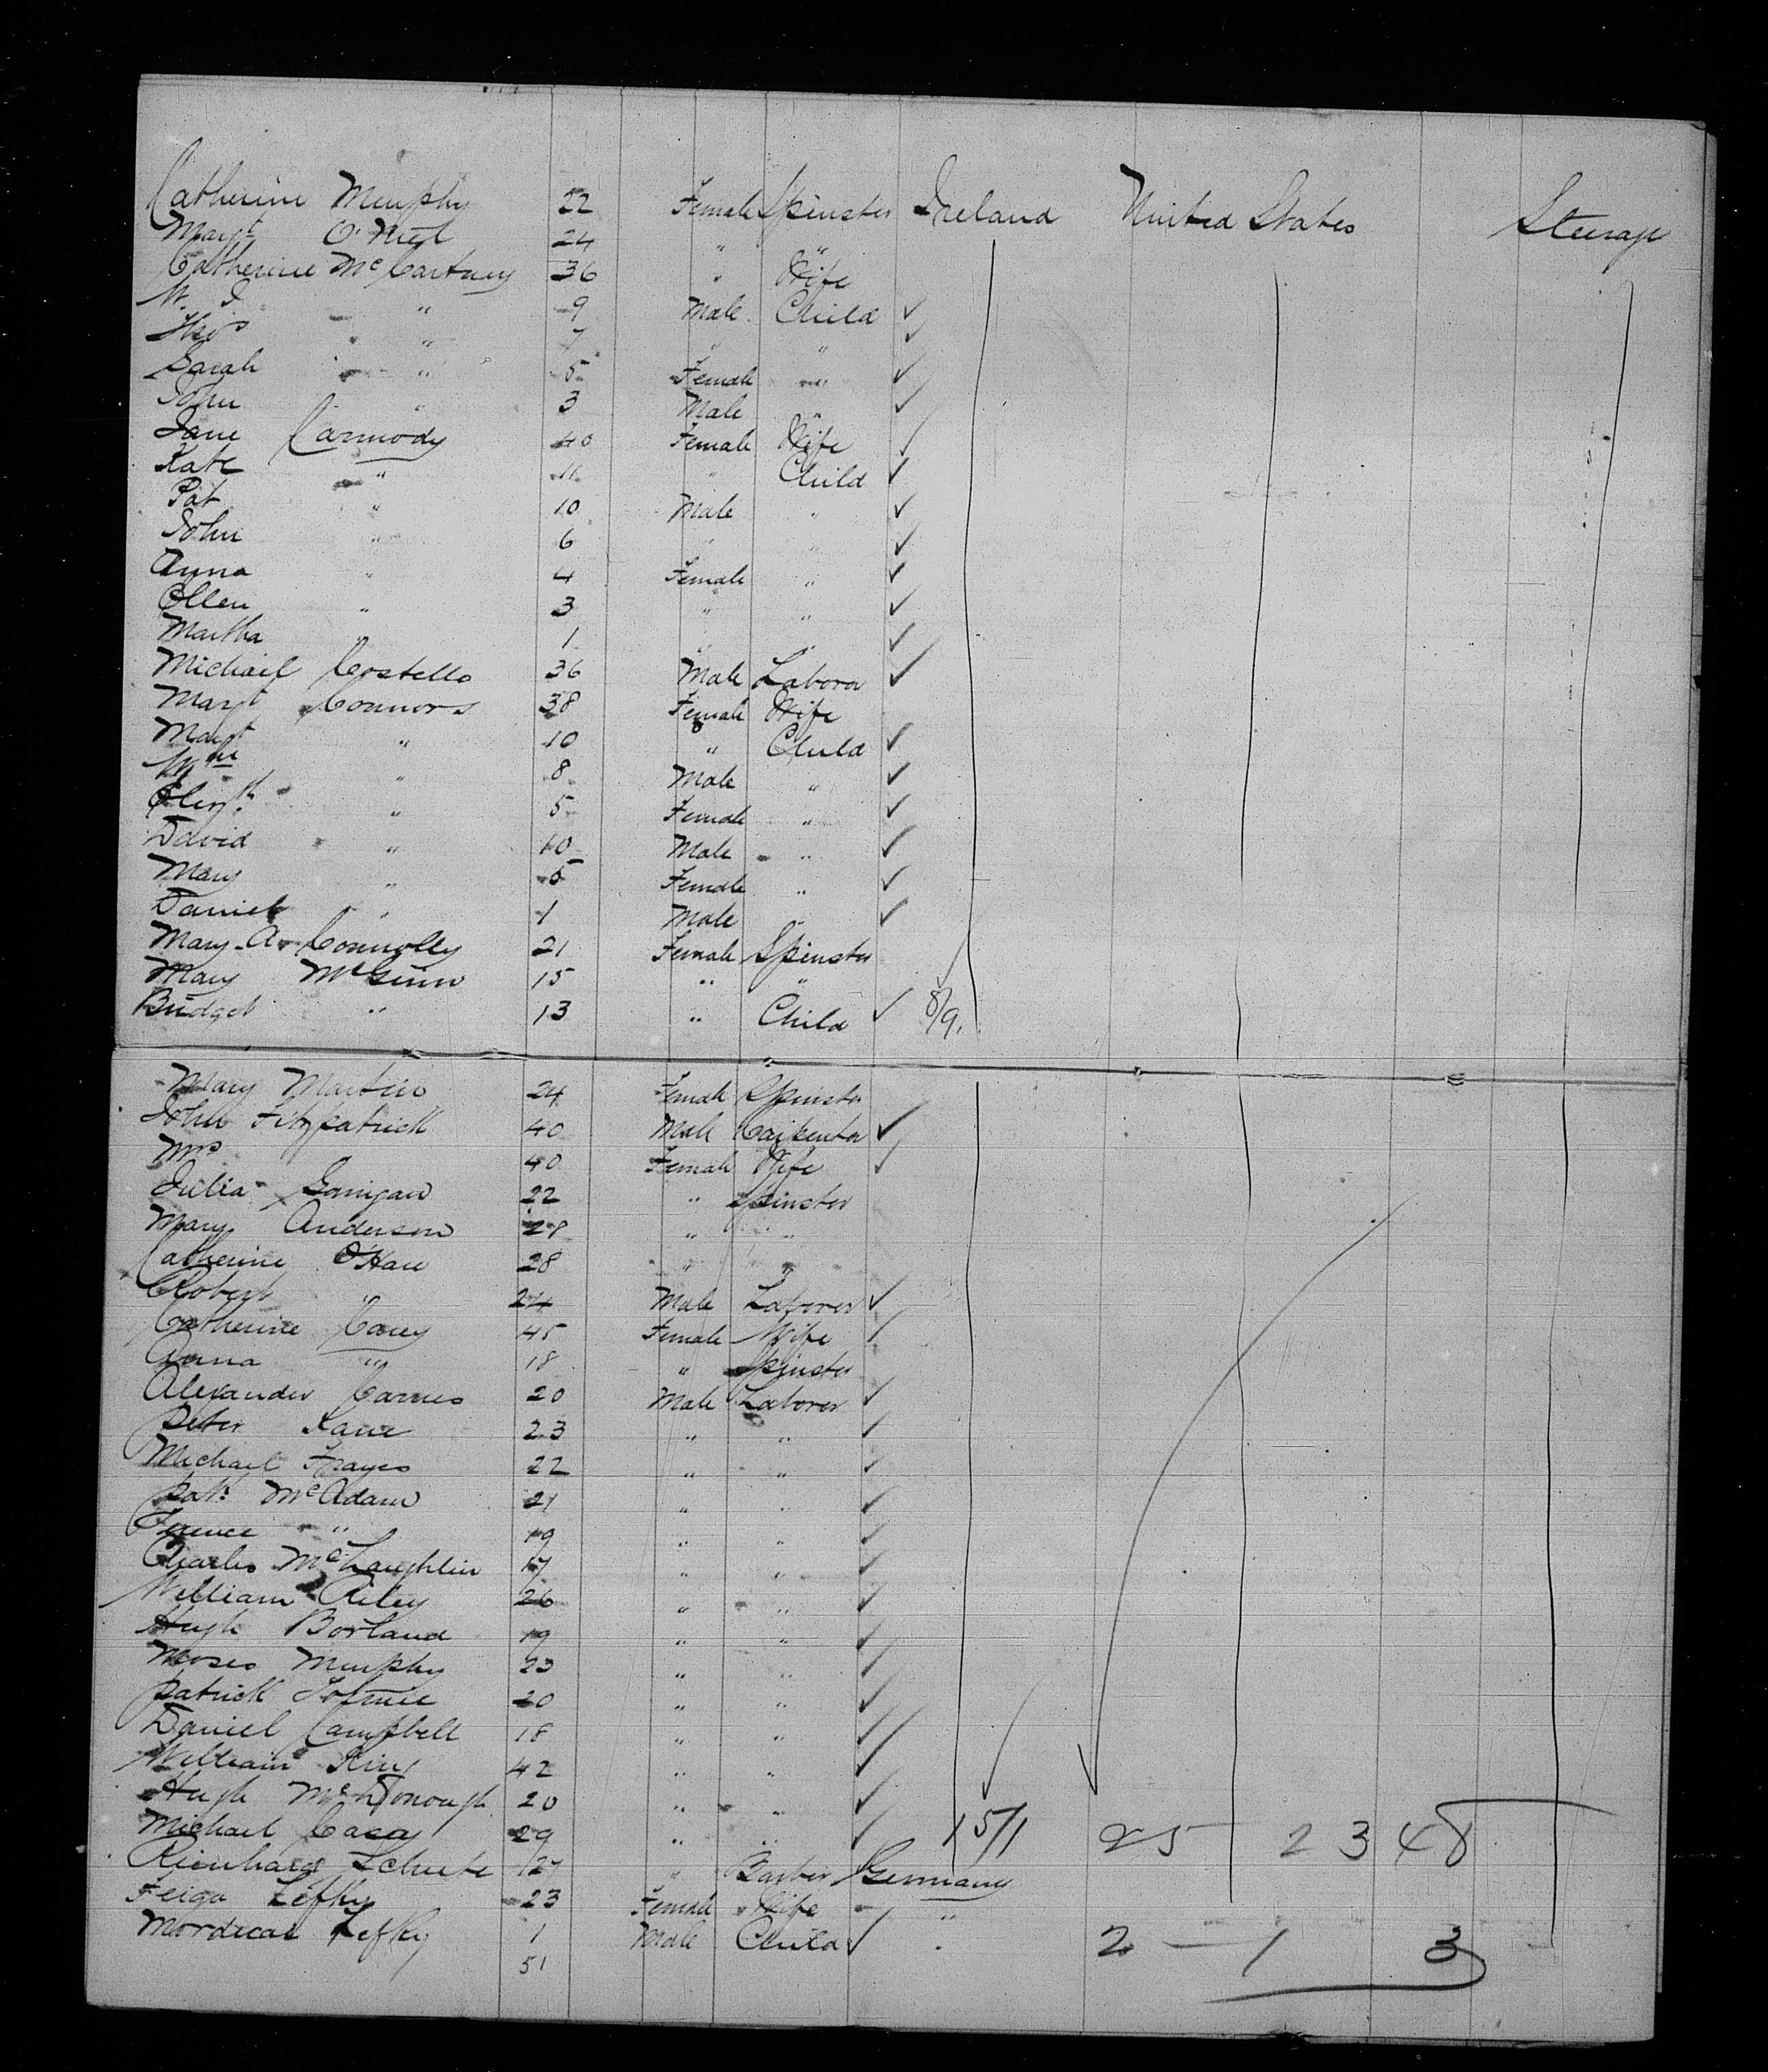 Catherine Murphy 22 Female Spinster Ireland United States Steerage
Margt O'Neil 24 " "
Catherine McCartney 36 " Wife
W. J. " 9 Male Child ✓
Thos " 7 " " ✓
Sarah " 5 Female " ✓
John " 3 Male " ✓
Jane Carmody 40 Female Wife
Kate " 11 " Child ✓
Pat " 10 Male " ✓
John " 6 " " ✓
Anna " 4 Female " ✓
Ellen " 3 " " ✓
Martha " 1 " " ✓
Michael Costello 36 Male Laborer ✓
Margt Connors 38 Female Wife
Margt " 10 " Child ✓
Wm " 8 Male " ✓
Elizth " 5 Female " ✓
David " 10 Male " ✓
Mary " 5 Female " ✓
Daniel " 1 Male " ✓
Mary A. Connolly 21 Female Spinster
Mary McGinn 15 " "
Bridget " 13 " Child ✓ 8/9.
Mary Martin 24 Female Spinster
John Fitzpatrick 40 Male Carpenter ✓
Mrs 40 Female Wife ✓
Julia 22 " Spinster
Mary Anderson " "
Catherine O'Hare 28 " "
Robert " 24 Male Laborer ✓
Catherine Carey 45 Female Wife
Anna " 18 " Spinster
Alexander Carnes 20 Male Laborer ✓
Peter Kane 23 " " ✓
Michael Hayes 22 " " ✓
Patk McAdam 21 " " ✓
Terence " 19 " " ✓
Charles McLaughlin 17 " " ✓
William Riley 26 " " ✓
Hugh Borland 19 " " ✓
Moses Murphy 23 " " ✓
Patrick 20 " " ✓
Daniel Campbell 18 " " ✓
William King 42 " " ✓
Hugh McDonough 20 " " ✓
Michael Casey 29 " " ✓ 15/1 25 23 48
Schulte 27 " Barber Germany
Feiga Lefky 23 Female Wife "
Mordecai Lefky 1 Male Child ✓ " 2 — 1 3
51